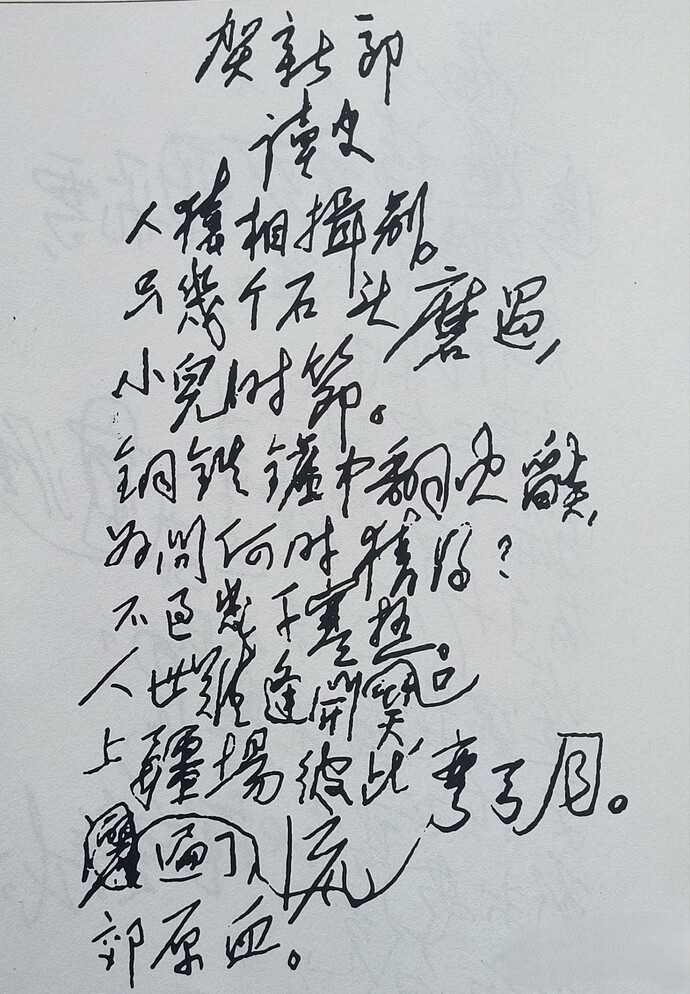 贺新郎
读史
人猿相揖别。
只幾个石头磨過,
小兒时節。
铜鉄鑪中翻火焰,
为问何时猜得?
不过幾千寒热。
人世難逢開口笑,
上疆場彼此弯弓月。
流遍了,
郊原血。